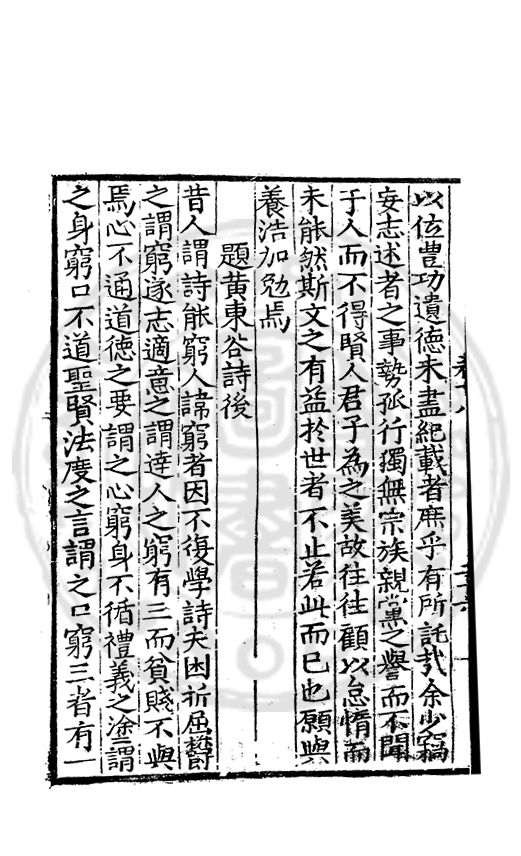 以佐豊功遺德未盡紀載者庶乎有所託哉余少竊
安志述者之事勢孤行獨無宗族親黨之譽而不聞
于人而不得賢人君子為之美故往往顧以怠惰而
未能然斯文之有益於世者不止若此而已也願與
養浩加勉焉
題黃東谷詩後
昔人謂詩能窮人諱窮者因不復學詩夫困折屈鬱
之謂窮遂志適意之謂達人之窮有三而貧賤不與
焉心不通道德之要謂之心窮身不循禮義之塗謂
之身窮口不道聖賢法度之言謂之口窮三者有一